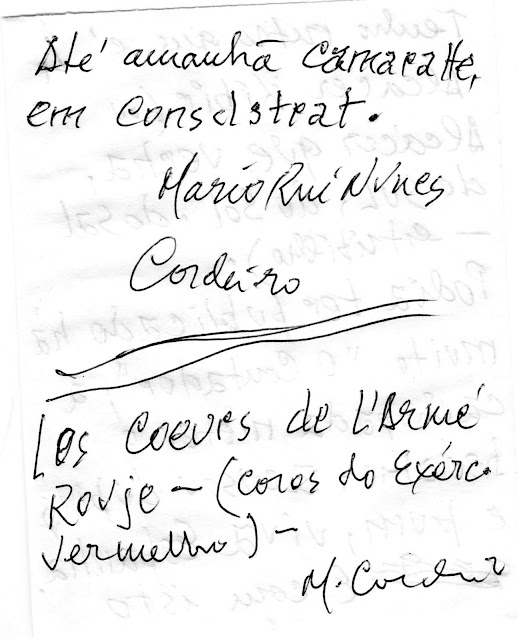 Até amanhã camaratte,
em consistrat.
Mario Rui Nunes
Cordeiro
Les coeurs de L'Armé
Rouje - (coros do Exérc.
Vermelho) -
M. Cordeiro